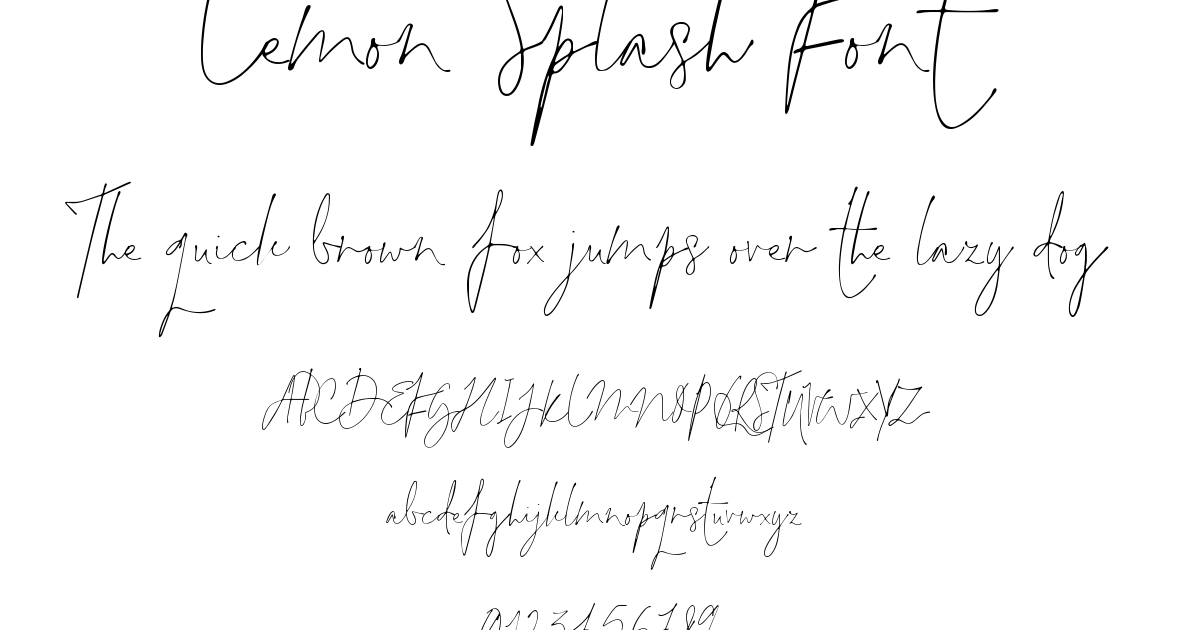 Lemon Splash Font
The quick brown fox jumps over the lazy dog
ABCDEFGHIJKLMNOPQRSTUVWXYZ
abcdefghijklmnopqrstuvwxyz
0123456789